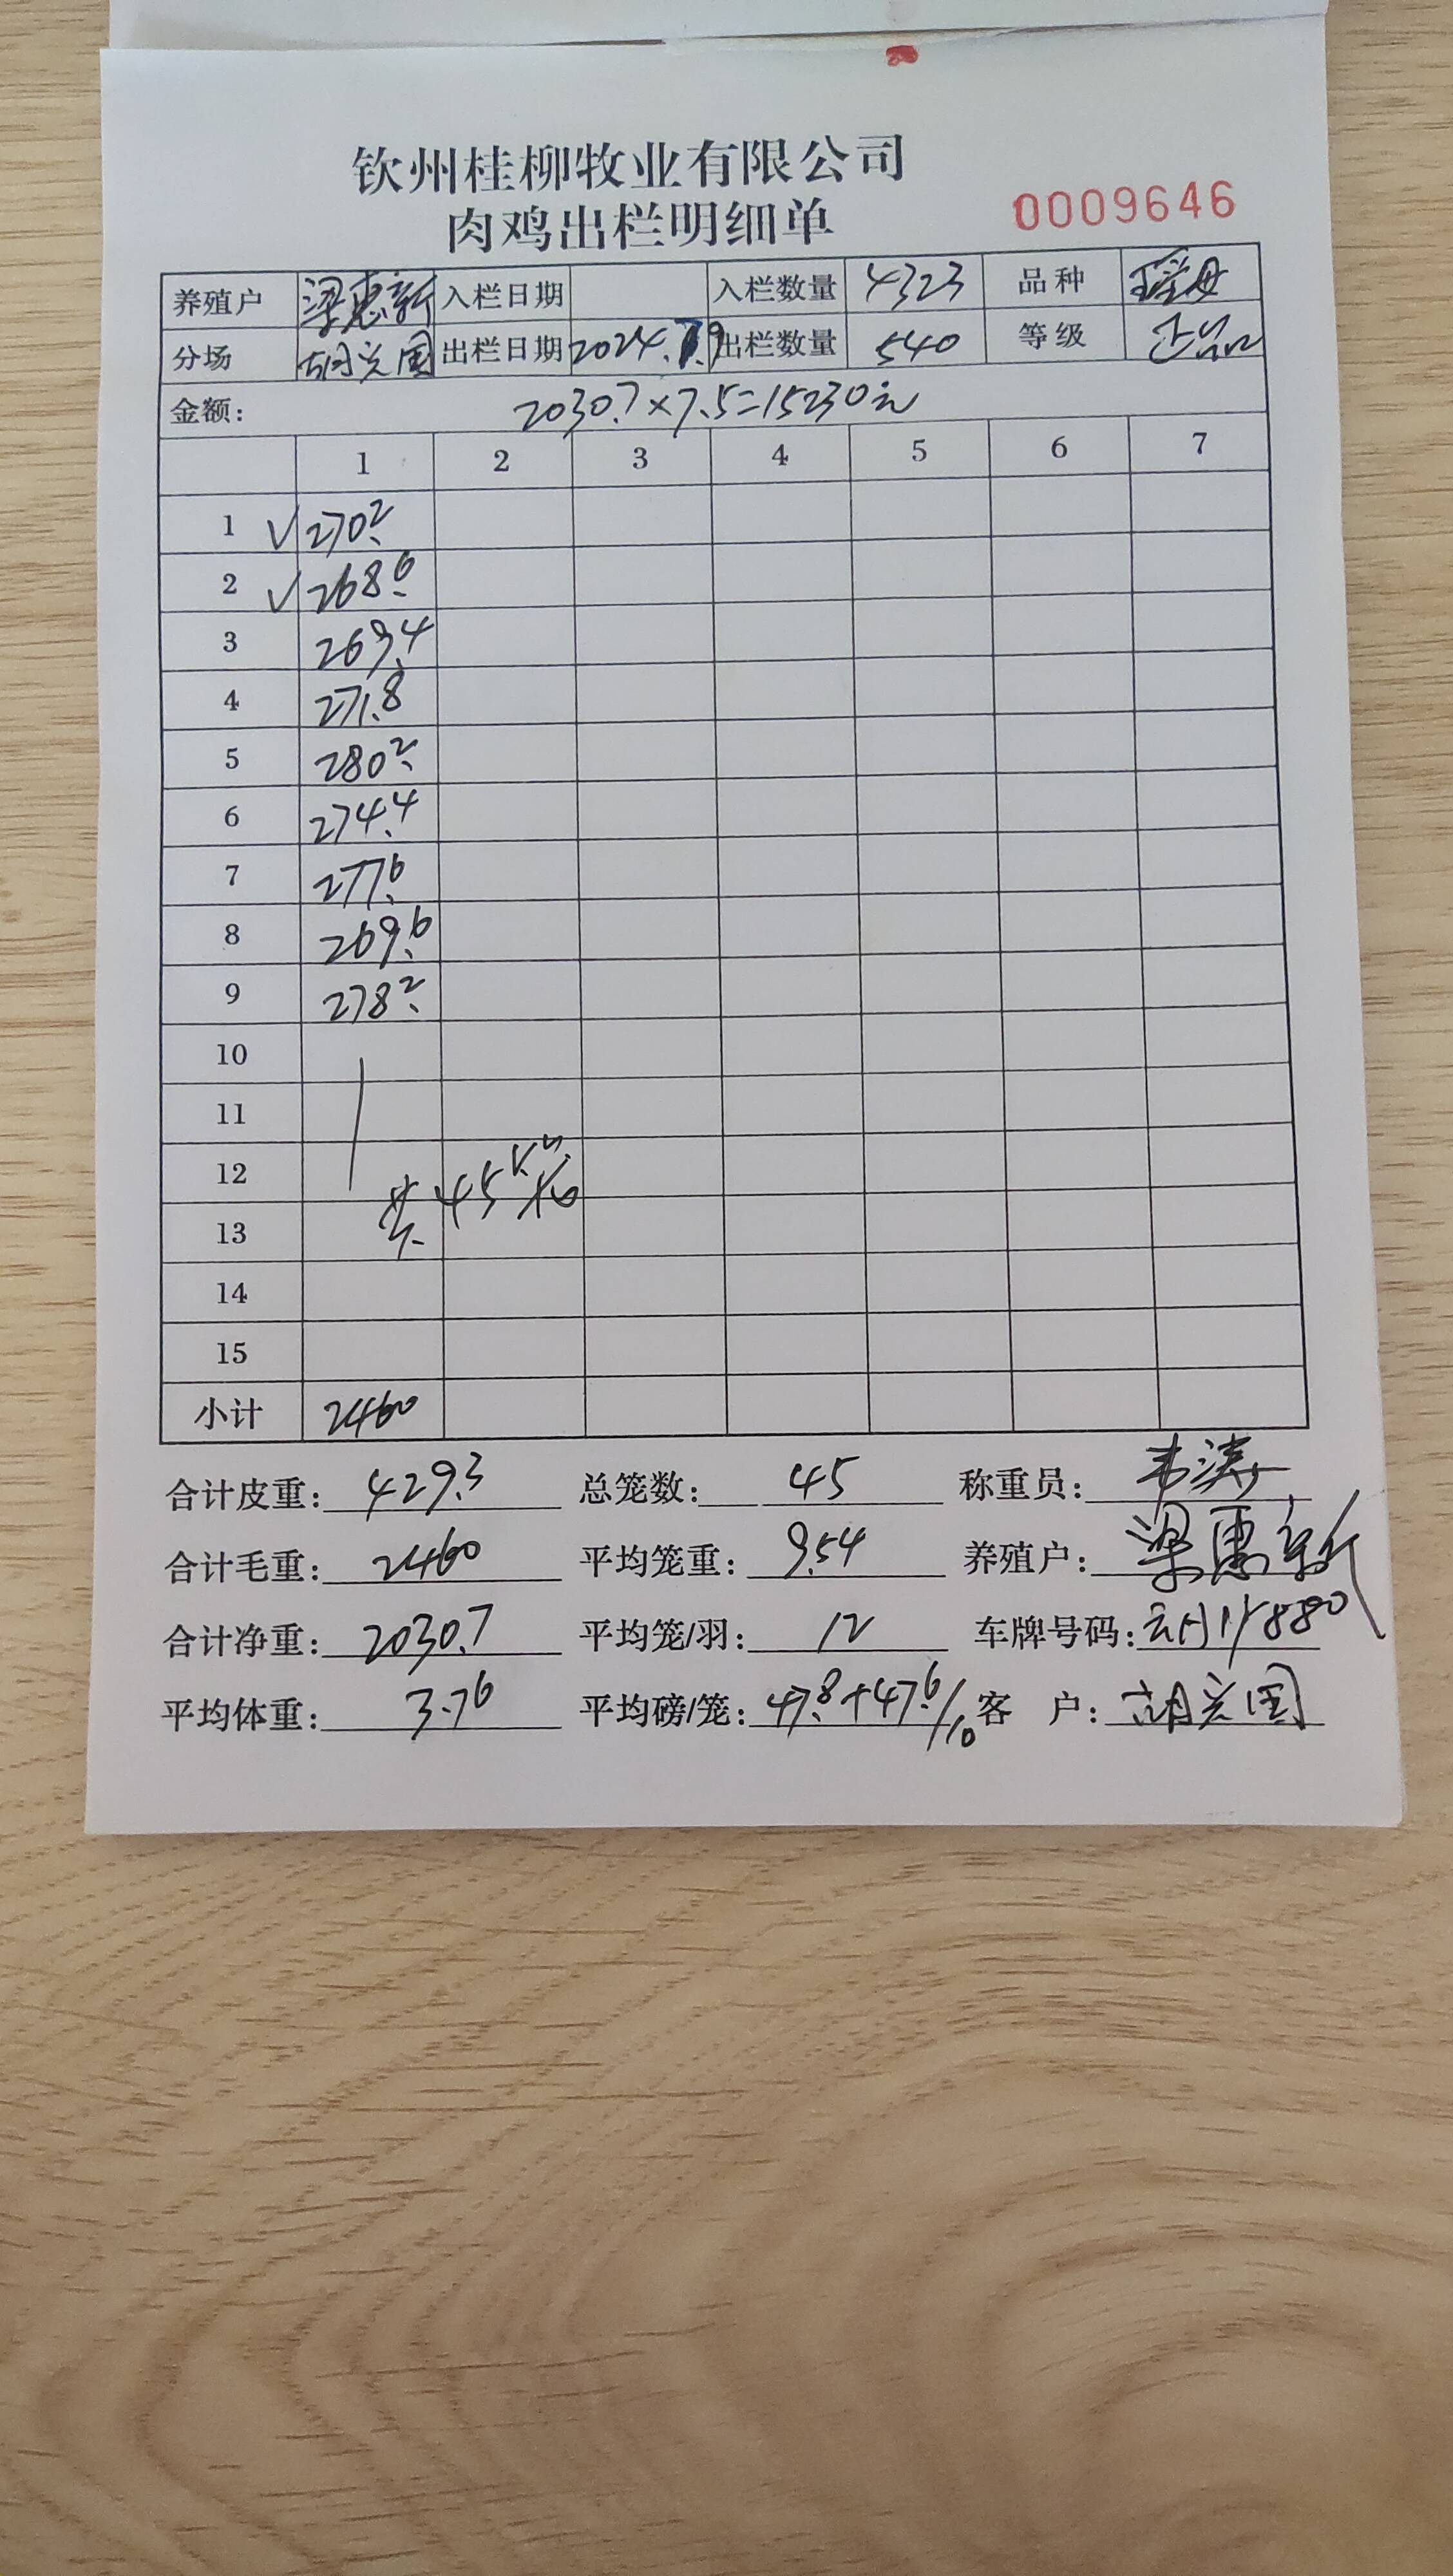 钦州桂柳牧业有限公司
肉鸡出栏明细单
0009646
养殖户 梁惠新 入栏日期 入栏数量 4323 品种 瑶母
分场 胡兴国 出栏日期 2024.7.9 出栏数量 540 等级 正品
金额: 2030.7×7.5=15230元
1 2 3 4 5 6 7
1 √270.2
2 √268.6
3 269.4
4 271.8
5 280.2
6 274.4
7 277.6
8 269.6
9 278.2
10
11
12
共45
13
14
15
小计 2460
合计皮重: 429.3 总笼数: 45 称重员: 韦涛
合计毛重: 2460 平均笼重: 9.54 养殖户: 梁惠新
合计净重: 2030.7 平均笼/羽: 12 车牌号码: 880
平均体重: 3.76 平均磅/笼: 47.8+47.6/10 客 户: 胡兴国